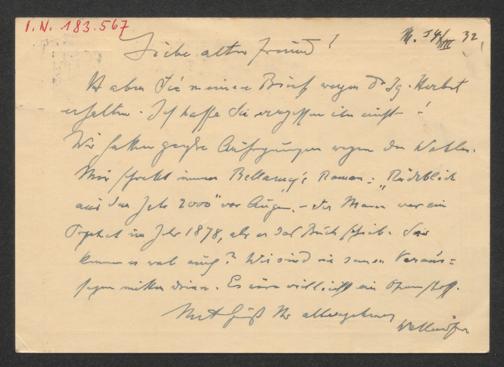 I.N. 183.567
14/VII 32
Liebe alter Freund!
Haben Sie meinen Brief wegen Dr Ig. Herbst
erhalten. Ich hoffe Sie vergessen ihn nicht!
Wir hatten große Aufregungen wegen der Wahlen.
Mir schwebt immer Bellamy's Roman: „Rückblick
aus dem Jahr 2000" vor Augen. – der Mann war ein
Prophet im Jahr 1878, als er das Buch schrieb. Sie
kennen es wohl auch? Wir sind in seinen Voraus=
sagen mitten drinn. Es wäre vielleicht ein Opernstoff.
Mit Gruß Ihr altergebener